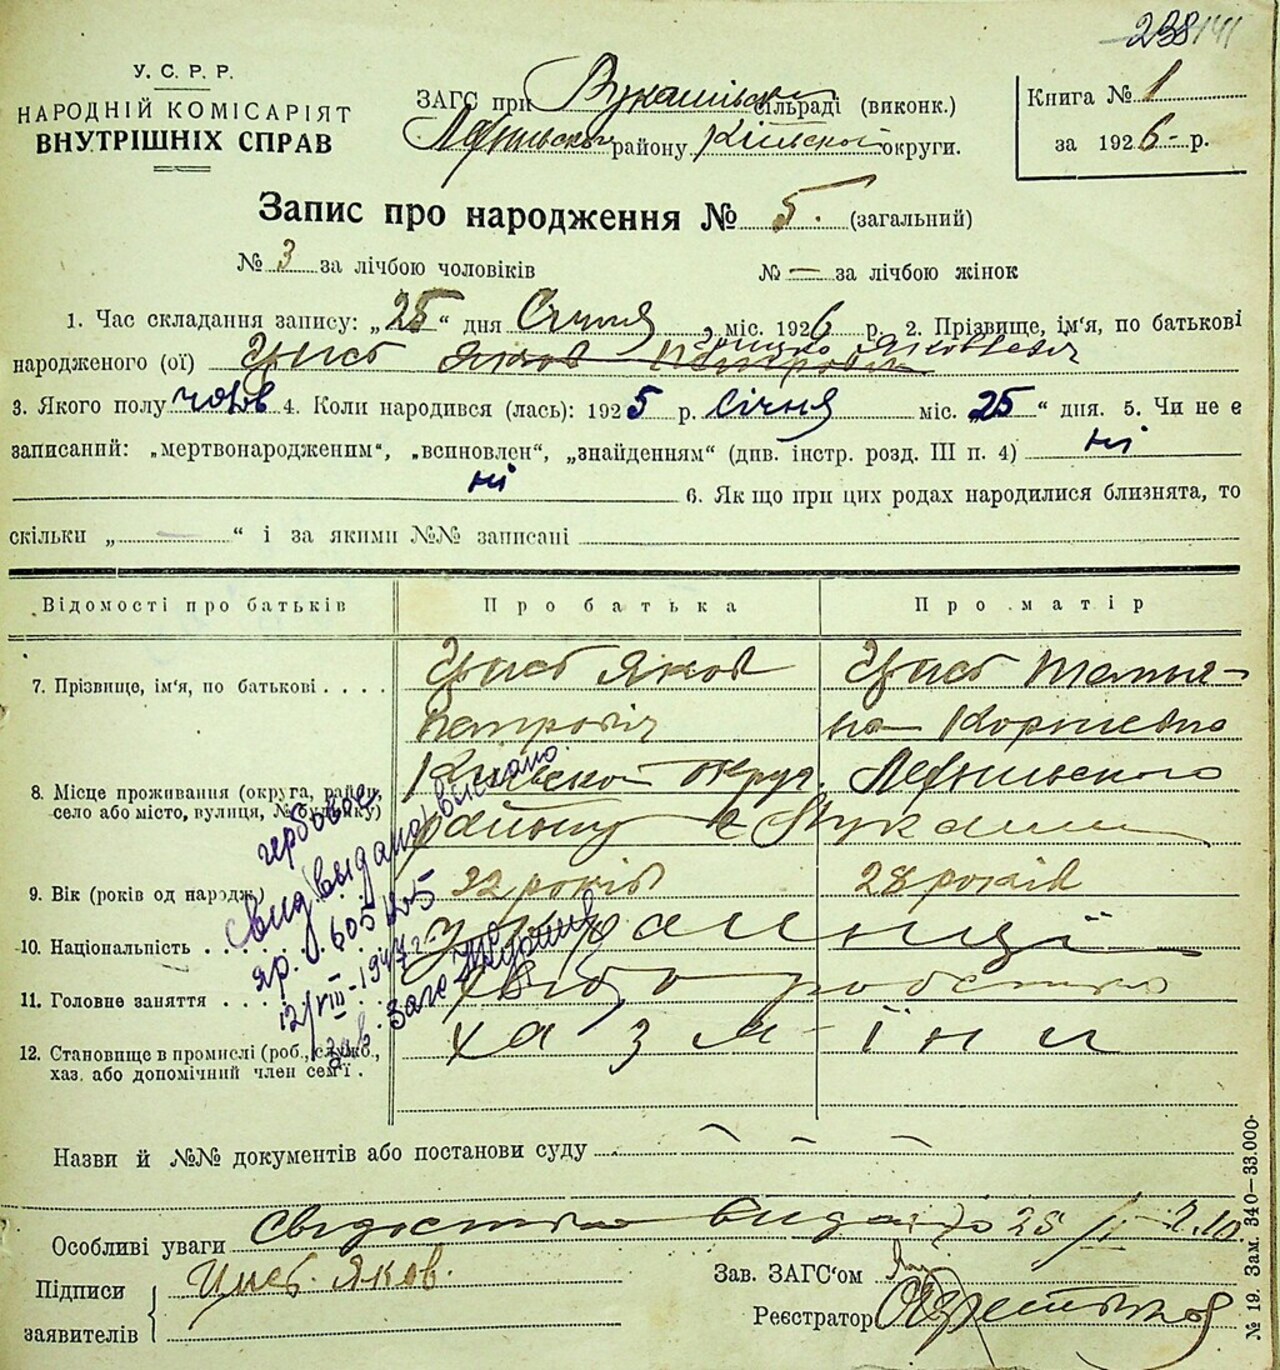 238 141
У. С. Р. Р.
НАРОДНІЙ КОМІСАРІЯТ
ВНУТРІШНІХ СПРАВ
ЗАГС при сільраді (виконк.)
району Київської округи.
Книга № 1
за 1926 р.
Запис про народження № 5. (загальний)
№ 3 за лічбою чоловіків
№ — за лічбою жінок
1. Час складання запису: „25“ дня Січня, міс. 1926 р. 2. Прізвище, ім'я, по батькові
Яковлевич
народженого (ої) Яков Петрович
3. Якого полу чолов 4. Коли народився (лась): 1925 р. Січня міс. 25“ дня. 5. Чи не є
записаний: „мертвонародженим“, „всиновлен“, „знайденням“ (див. інстр. розд. III п. 4) ні
ні 6. Як що при цих родах народилися близнята, то
скільки „ — “ і за якими №№ записані
Відомості про батьків
Про батька
Про матір
7. Прізвище, ім'я, по батькові . . . .
Яков
Татья-
Петровіч
на Корніевна
8. Місце проживання (округа, район, село або місто, вулиця, № будинку)
Київской округ.
району с
9. Вік (років од народж.)
22 років
28 років
10. Національність . . . .
українці
11. Головне заняття . . . .
хліборобство
12. Становище в промислі (роб., служб., хаз. або допомічний член сем'ї .
хазяїни
гербовое
свид выдано выслано
яр. 605405
12/VIII-1947 г.
зав. Загс
Назви й №№ документів або постанови суду — — —
Особливі уваги видано 25/I
Підписи
заявителів
Яков.
Зав. ЗАГС'ом
Реєстратор
№ 19. Зам. 340—33.000.